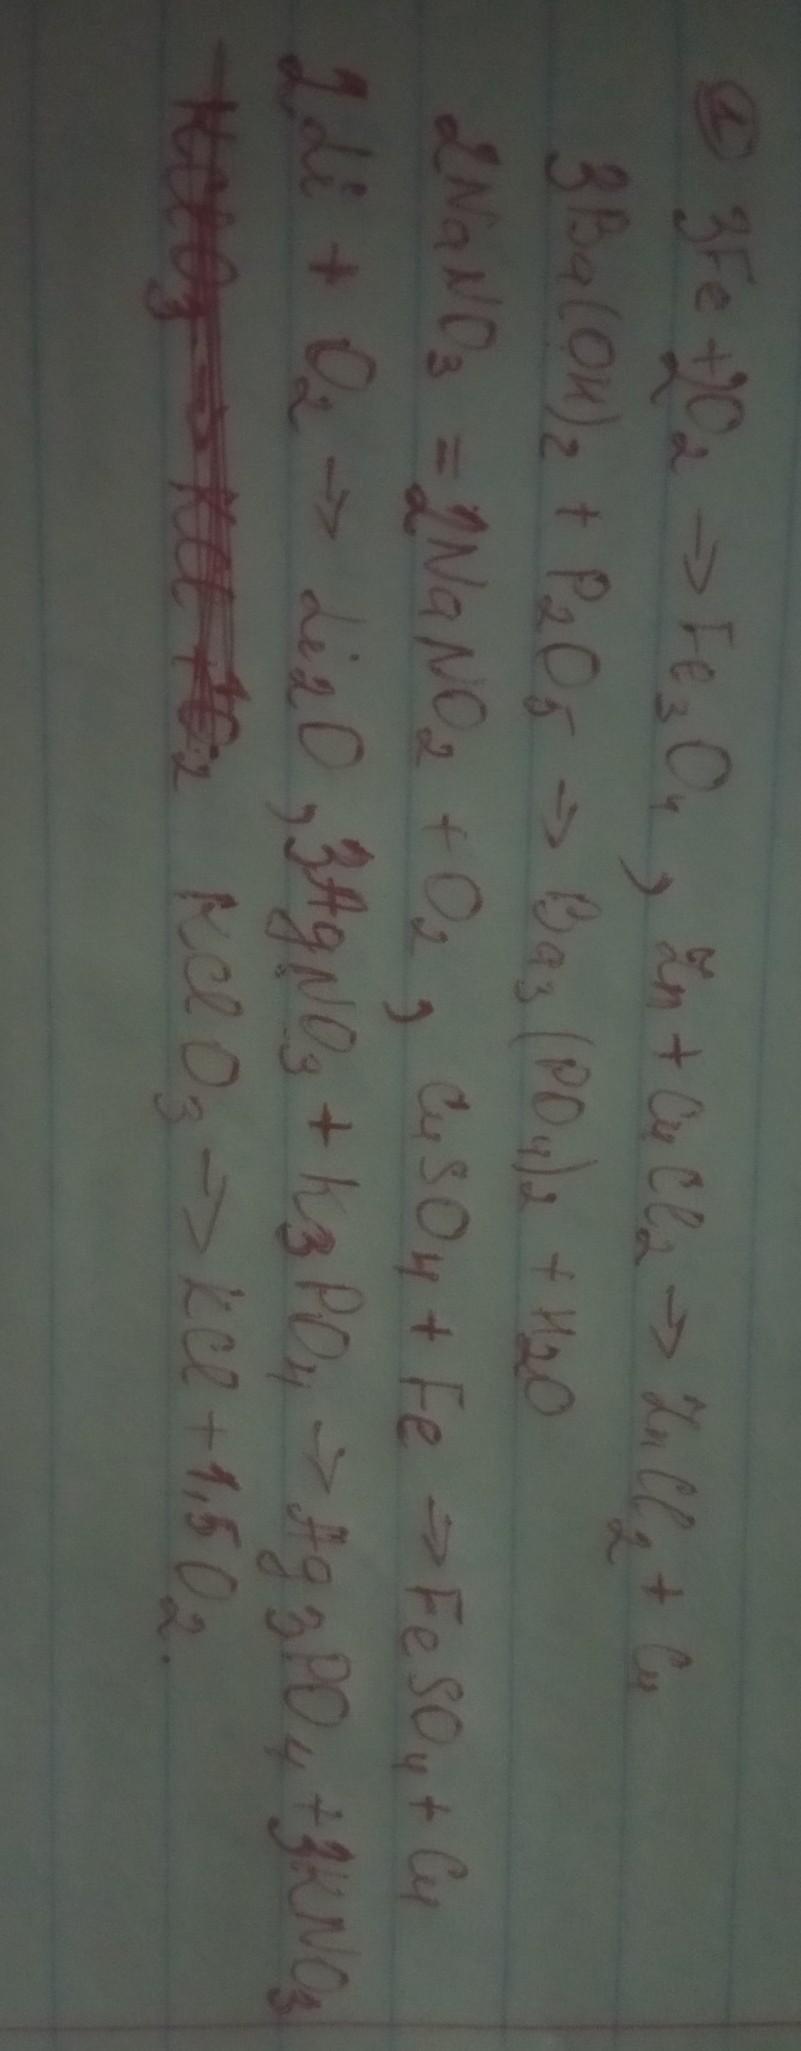 ① 3Fe + 2O₂ → Fe₃O₄, Zn + CuCl₂ → ZnCl₂ + Cu
3Ba(OH)₂ + P₂O₅ → Ba₃(PO₄)₂ + H₂O
2NaNO₃ = 2NaNO₂ + O₂, CuSO₄ + Fe → FeSO₄ + Cu
2Li + O₂ → Li₂O, 3AgNO₃ + K₃PO₄ → Ag₃PO₄ + 3KNO₃
KClO₃ → KCl + O₂ KClO₃ → KCl + 1,5O₂.